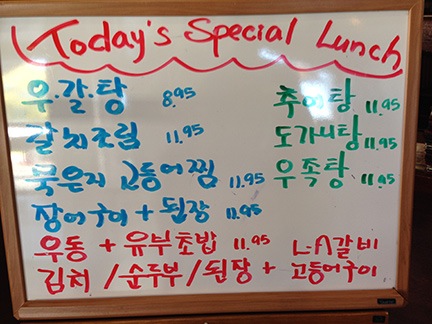 Today's Special Lunch
우·갈·탕 8.95
추어탕 11.95
갈치조림 11.95
도가니탕 11.95
묵은지 고등어찜 11.95
우족탕 11.95
장어구이 + 된장 11.95
우동 + 유부초밥 11.95 L:A갈비
김치 / 순두부 / 된장 + 고등어구이